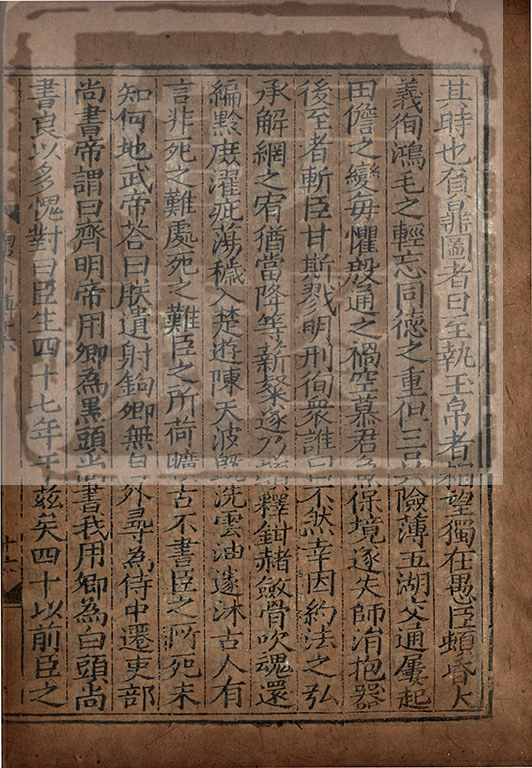 其時也負鼎圖者日至執玉帛者相望獨在愚臣頓昏大
義徇鴻毛之輕忘同德之重但三吳險薄五湖交通屢起
田儋之變每懼殷通之禍空慕君魚保境遂失師涓抱器
後至者斬臣甘斯戮明刑徇衆誰曰不然幸因約法之弘
承解網之宥猶當降等薪粲遂乃頓釋鉗赭斂骨吹魂還
編黔庶濯疵蕩穢入楚遊陳天波既洗雲油遽沐古人有
言非死之難處死之難臣之所荷曠古不書臣之所死未
知何地武帝荅曰朕遺射鉤卿無自外尋為侍中遷吏部
尚書帝謂曰齊明帝用卿為黑頭尚書我用卿為白頭尚
書良以多愧對曰臣生四十七年于茲矣四十以前臣之
列傳十六